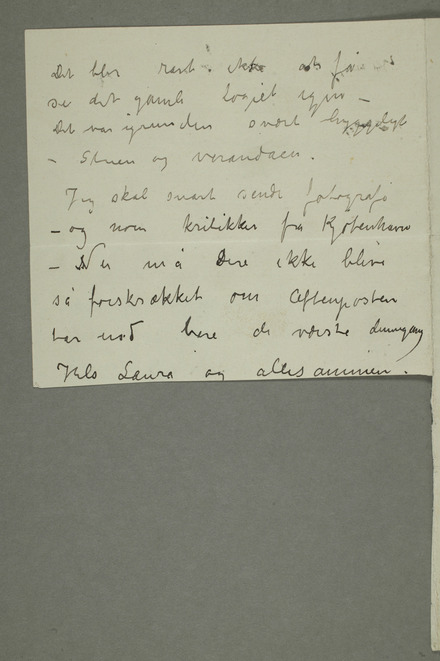 Det blir rart ikke at få
se det gamle Logiet igjen –
Det var igrunden svært hyggeligt
– Stuen og verandaen.
Jeg skal snart sende fotografi
– og noen kritikker fra Kjøbenhavn
– Nu må Dere ikke blive
så forskrækket om Aftenposten
tar med bare de værste
Hils Laura og allesammen.